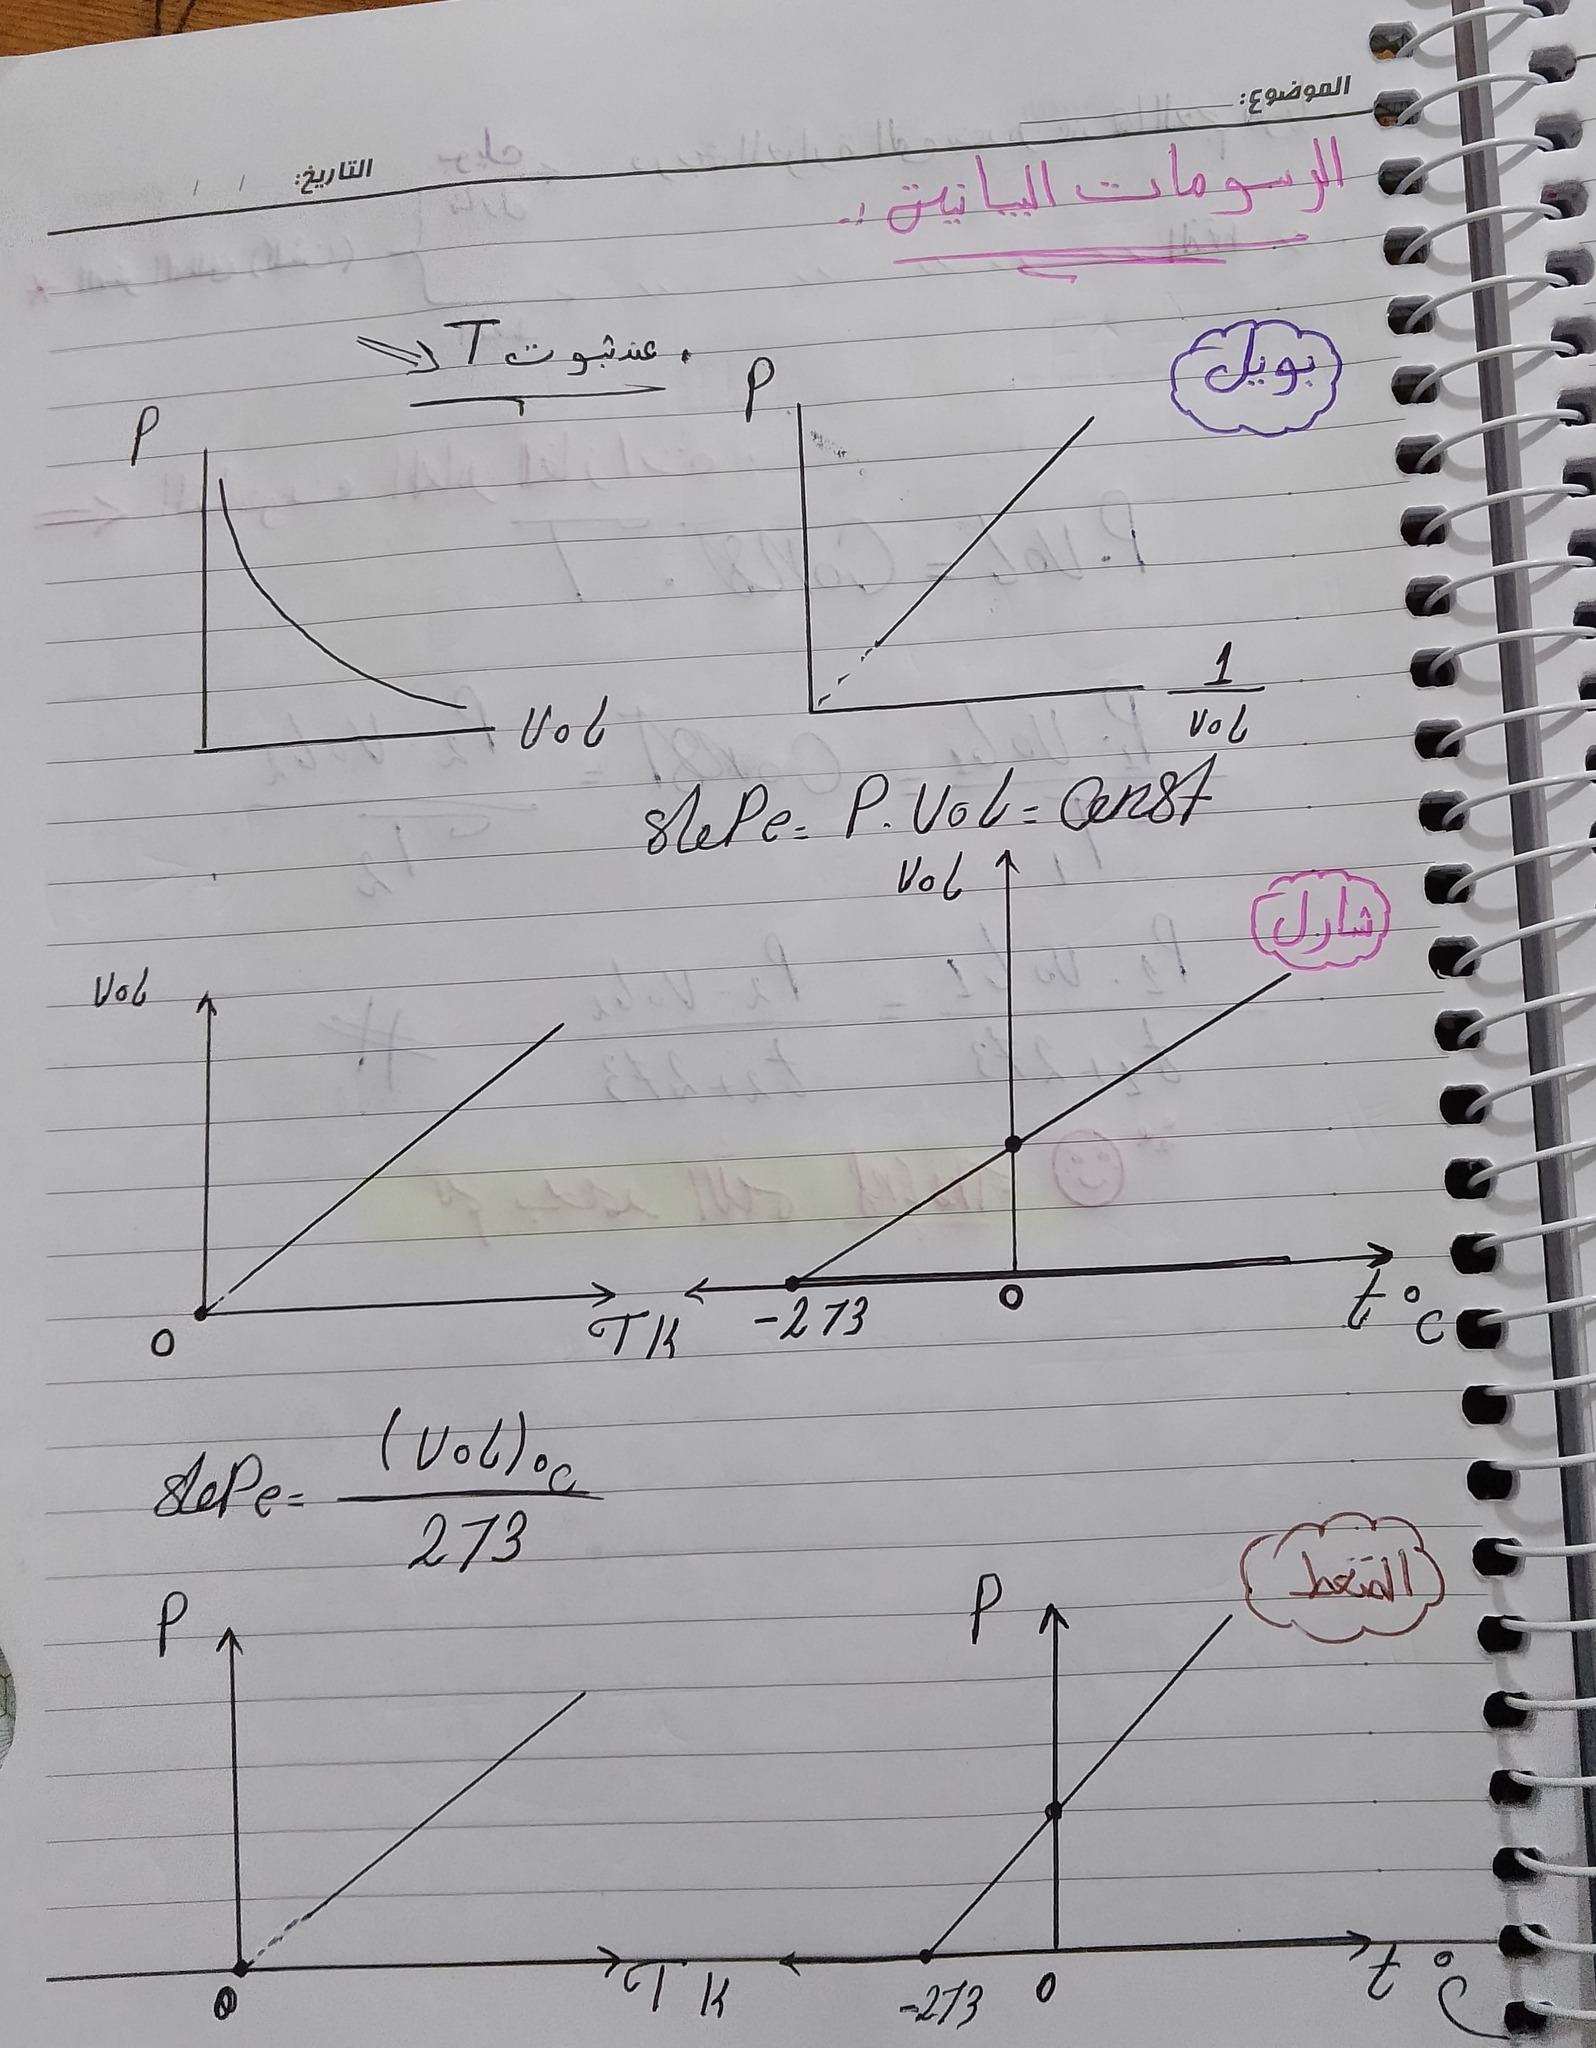 الموضوع:
التاريخ: / /
الرسومات البيانية :-
بويل
عند ثبوت T
P
P
Vol
1
Vol
slope = P. Vol = Const
شارل
Vol
Vol
0
T K
-273
0
t °C
slope = (Vol)0°C
273
الضغط
P
P
0
T K
-273
0
t °C